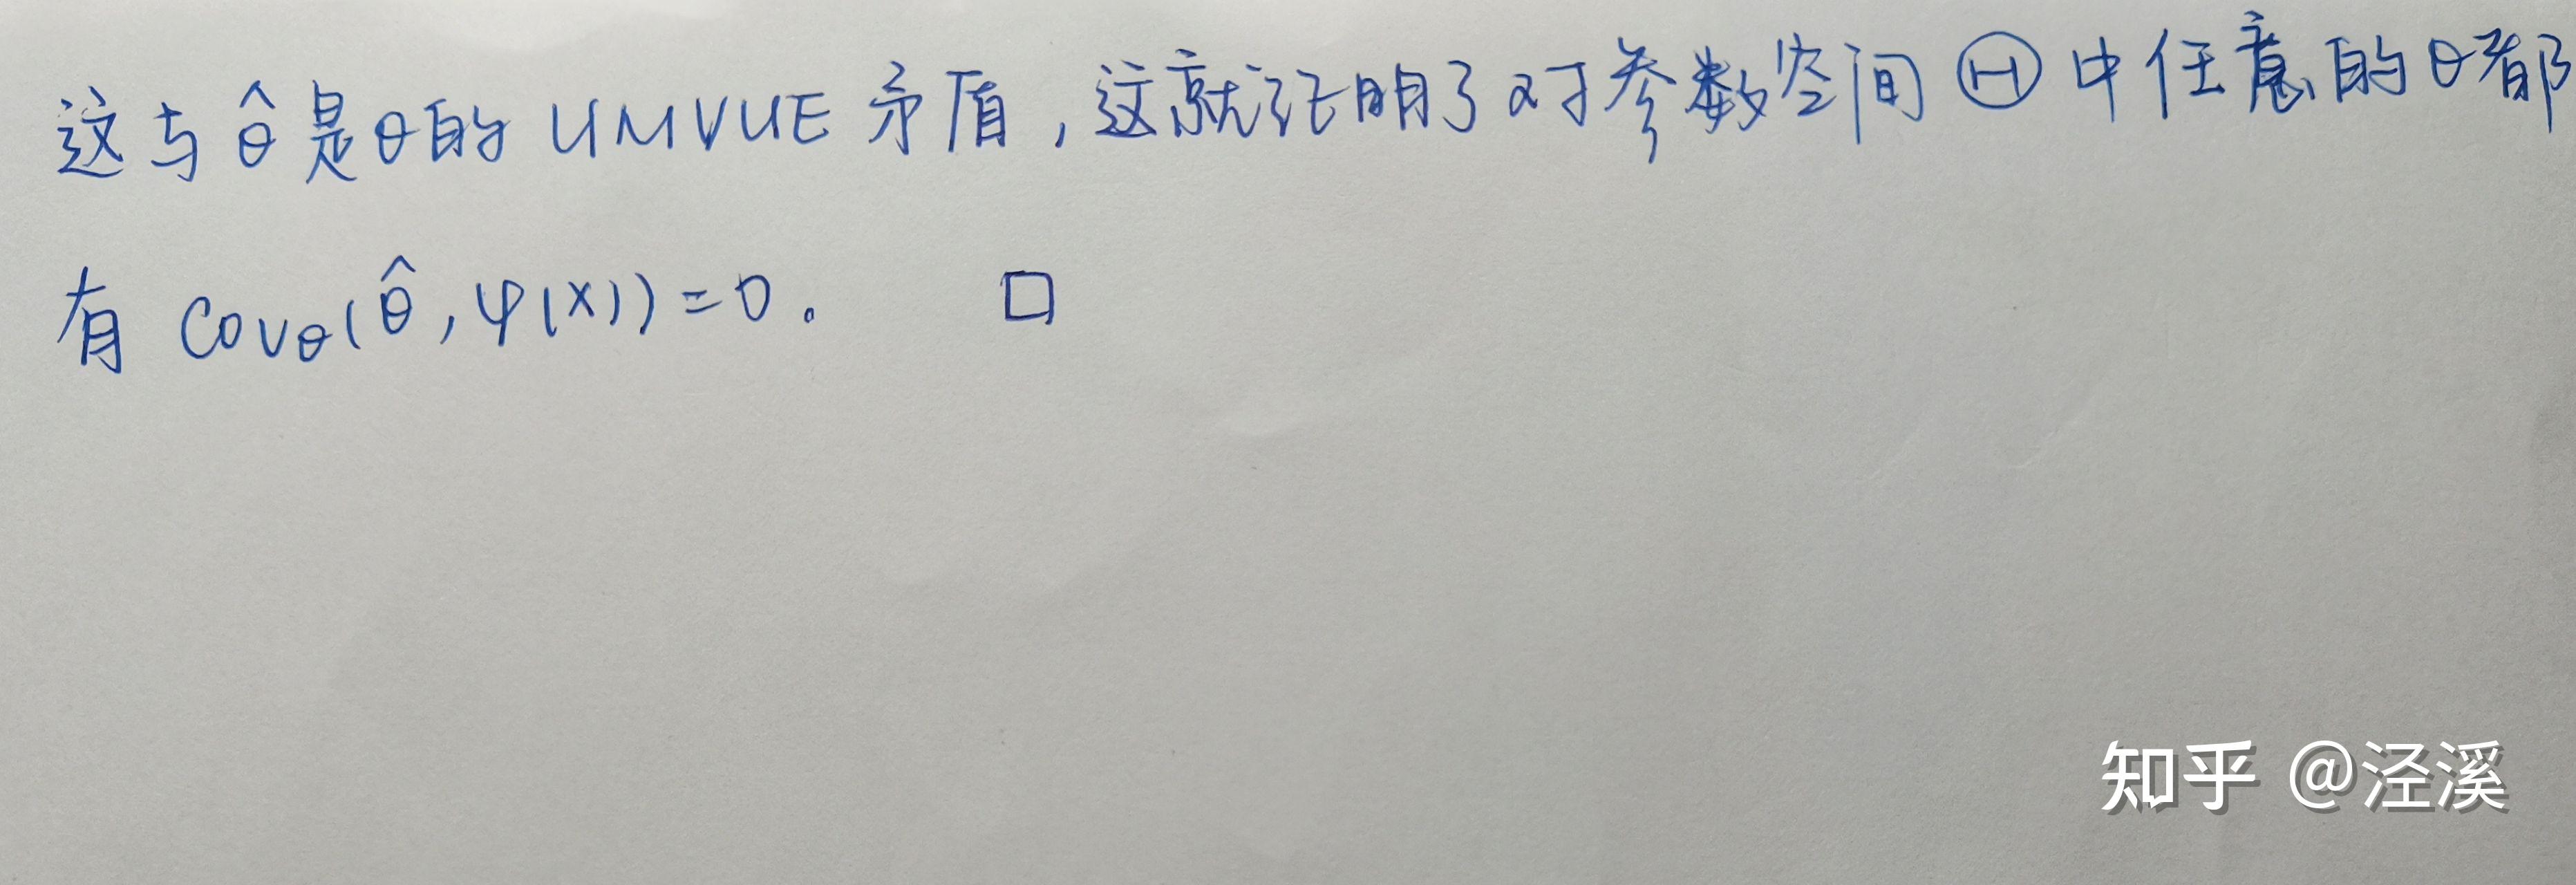 这与 θ̂ 是θ的 UMVUE 矛盾,这就证明了对参数空间 Θ 中任意的θ都
有 Covθ(θ̂,φ(x))=0。 □
知乎 @泾溪